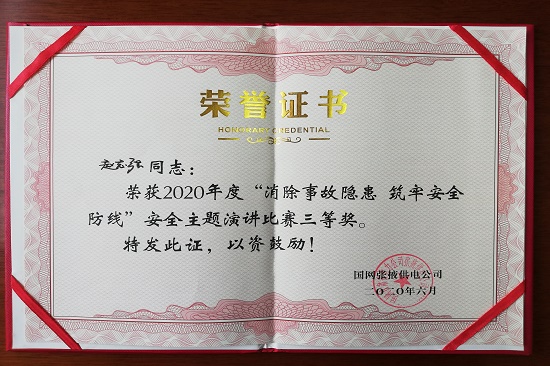 荣誉证书
HONORARY CREDENTIAL
同志：
荣获2020年度“消除事故隐患 筑牢安全
防线”安全主题演讲比赛三等奖。
特发此证，以资鼓励！
国网张掖供电公司
二〇二〇年六月